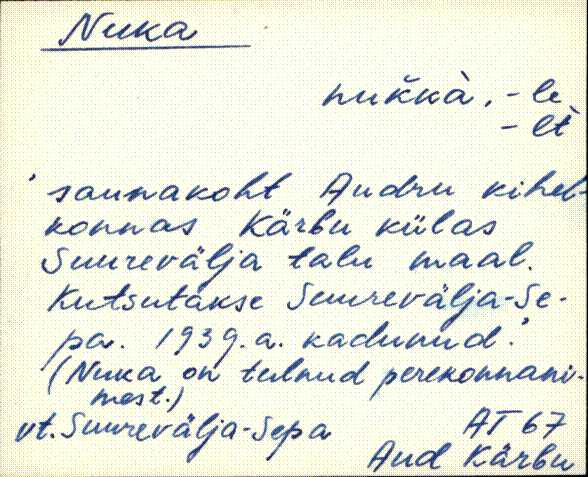 Nuka
nuk̆kà, -le
-lt̀
' saunakoht Audru kihel-
konnas Kärbu külas
Suurevälja talu maal.
Kutsutakse Suurevälja-Se-
pa. 1939.a. kadunud.'
(Nuka on tulnud perekonnani-
mest.)
vt. Suurevälja-Sepa
AT 67
Aud Kärbu